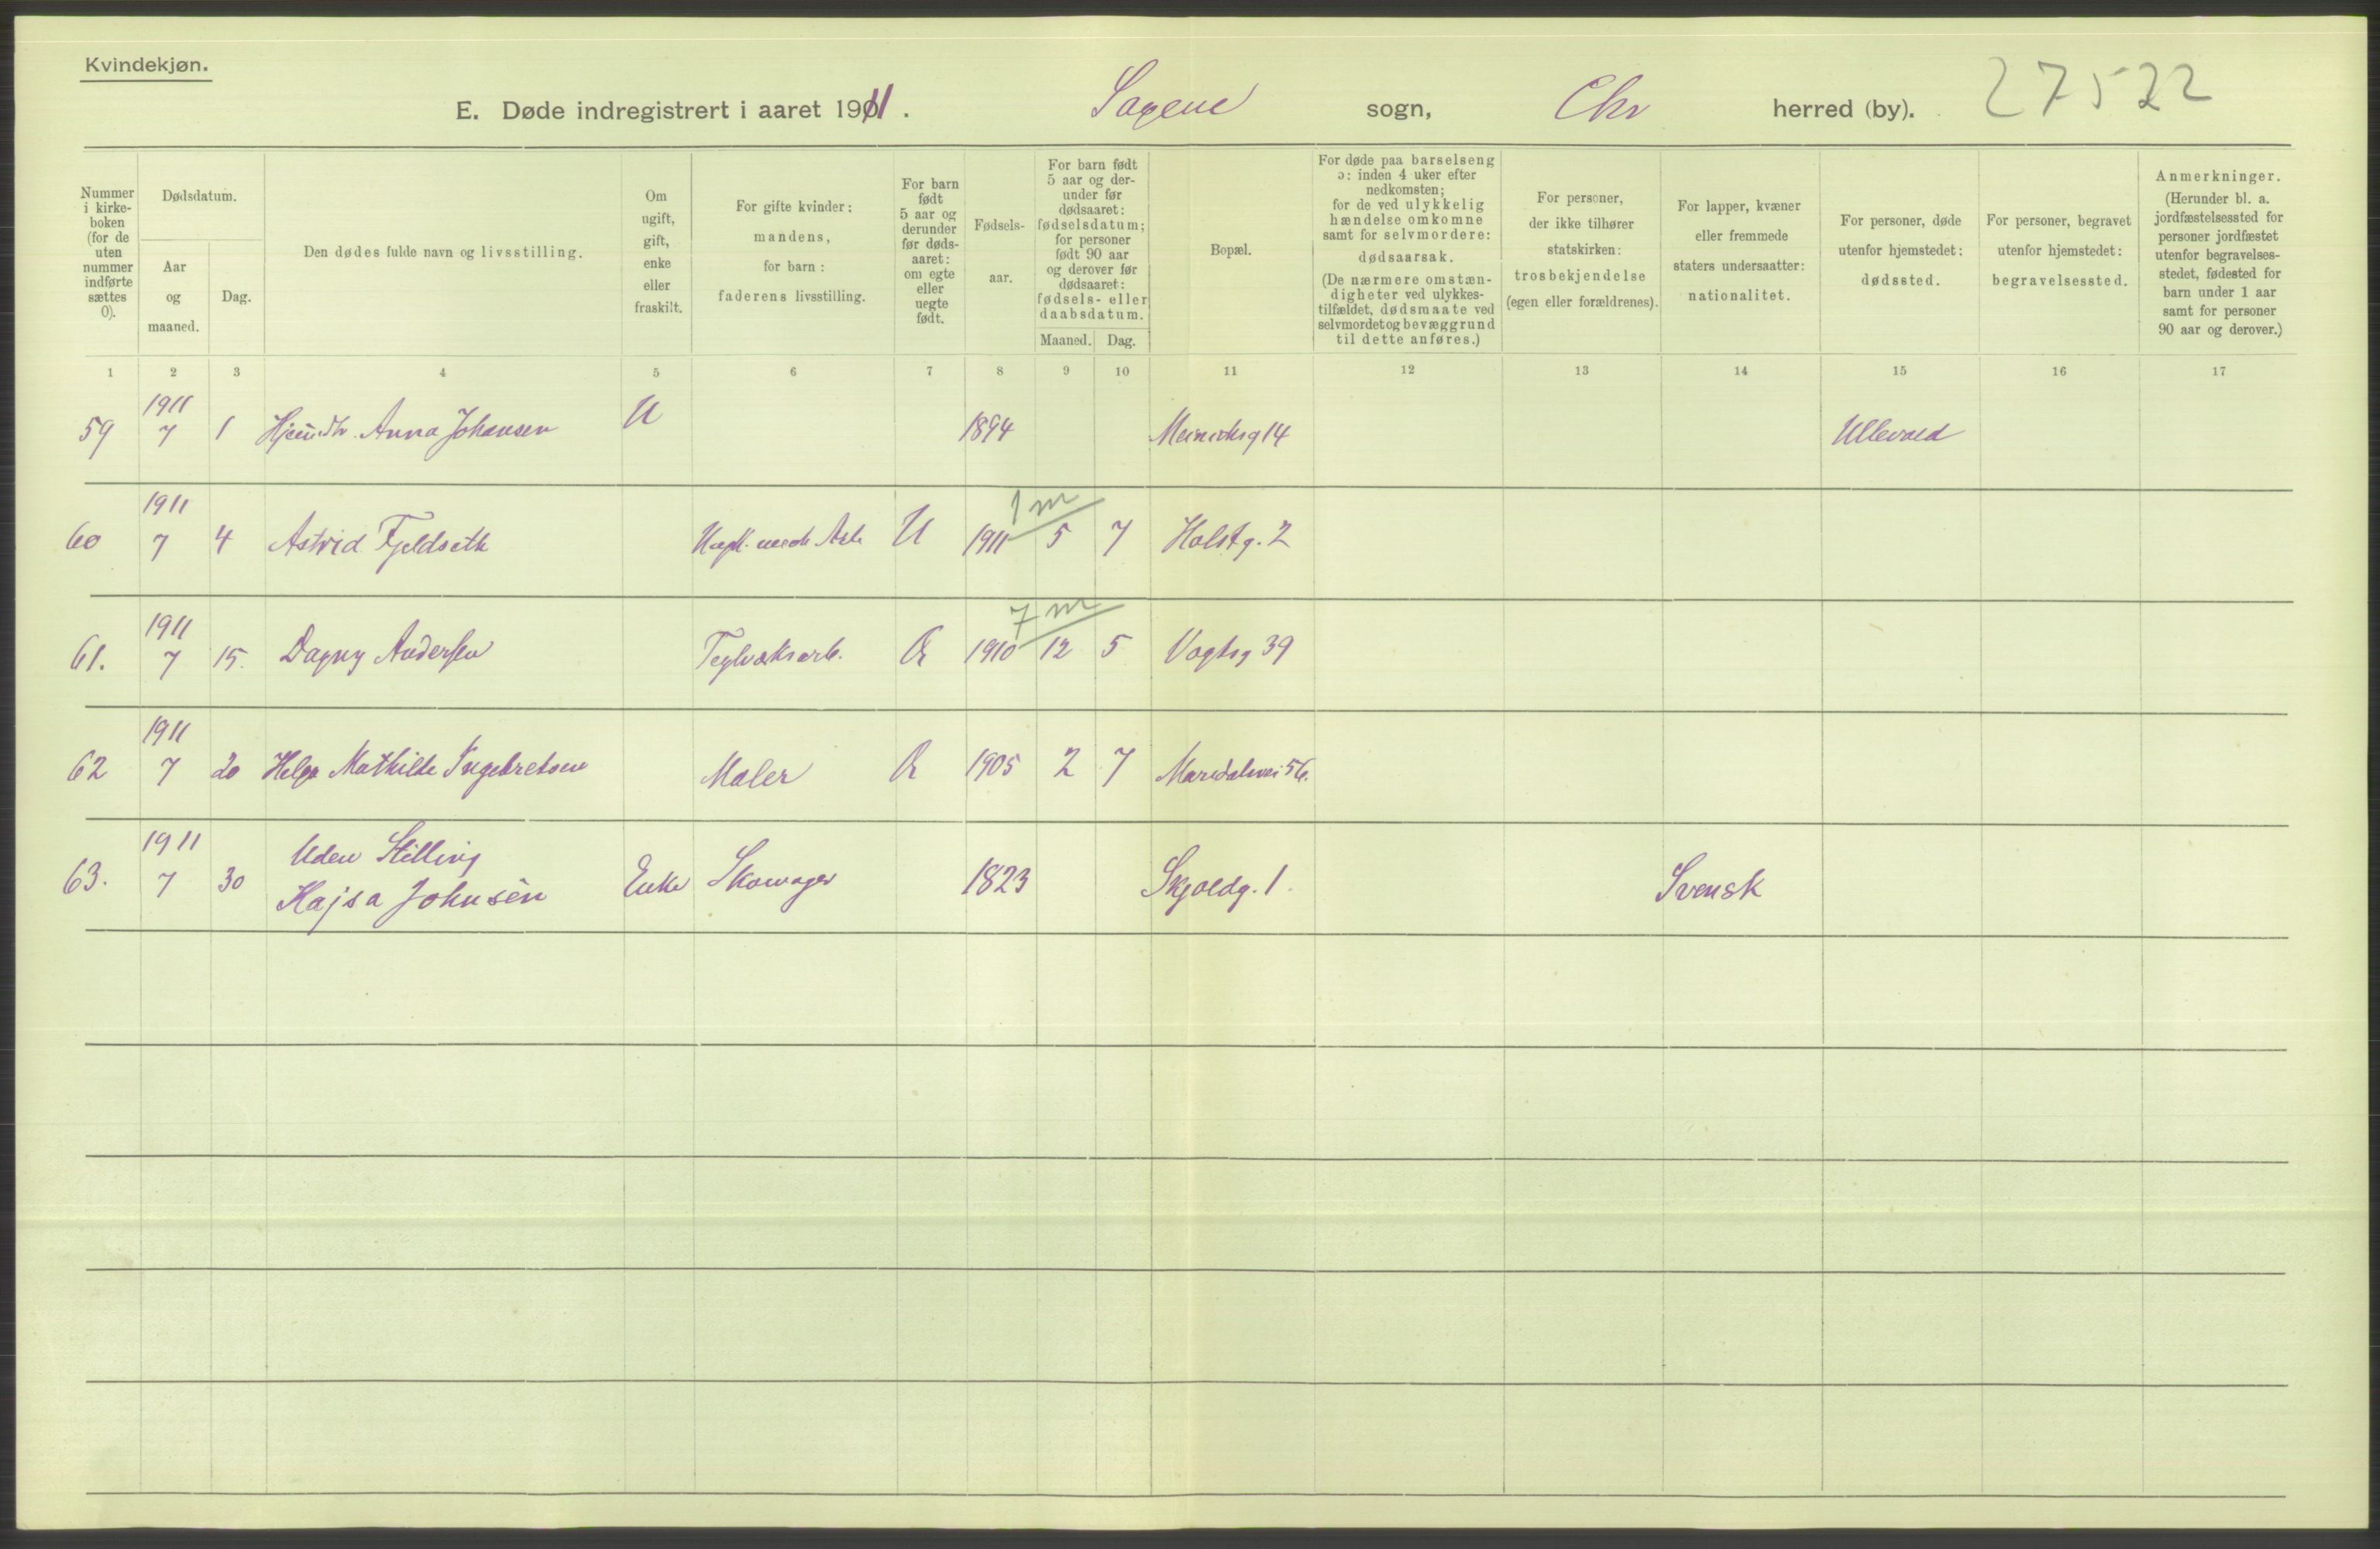 Kvindekjøn.
E. Døde indregistrert i aaret 1911. Sagene sogn, Chr herred (by). 27522
Nummer i kirke-boken (for de uten nummer indførte sættes 0).
Dødsdatum.
Aar og maaned.
Dag.
Den dødes fulde navn og livsstilling.
Om ugift, gift, enke eller fraskilt.
For gifte kvinder: mandens, for barn: faderens livsstilling.
For barn født 5 aar og derunder før døds-aaret: om egte eller uegte født.
Fødsels-aar.
For barn født 5 aar og der-under før dødsaaret: fødselsdatum; for personer født 90 aar og derover før dødsaaret: fødsels- eller daabsdatum.
Maaned. Dag.
Bopæl.
For døde paa barselseng ɔ: inden 4 uker efter nedkomsten; for de ved ulykkelig hændelse omkomne samt for selvmordere: dødsaarsak. (De nærmere omstæn-digheter ved ulykkes-tilfældet, dødsmaate ved selvmordet og bevæggrund til dette anføres.)
For personer, der ikke tilhører statskirken: trosbekjendelse (egen eller forældrenes).
For lapper, kvæner eller fremmede staters undersaatter: nationalitet.
For personer, døde utenfor hjemstedet: dødssted.
For personer, begravet utenfor hjemstedet: begravelsessted.
Anmerkninger. (Herunder bl. a. jordfæstelsessted for personer jordfæstet utenfor begravelses-stedet, fødested for barn under 1 aar samt for personer 90 aar og derover.)
1 2 3 4 5 6 7 8 9 10 11 12 13 14 15 16 17
59 1911 7 1 Anna Johansen U 1894 14 Ullevaal
1 m
60 1911 7 4 Astrid Fjeldseth U 1911 5 7 Holstg. 2
7 m
61. 1911 7 15. Dagny Andersen Teglverksarb. 1910 12 5 Vogtsg 39
62 1911 7 20 Helga Mathilde Ingebretsen Maler 1905 2 7 Maridalsvei 56.
63. 1911 7 30 Uden Stilling
Kajsa Johnsèn Enke 1823 Skjoldg. 1. Svensk